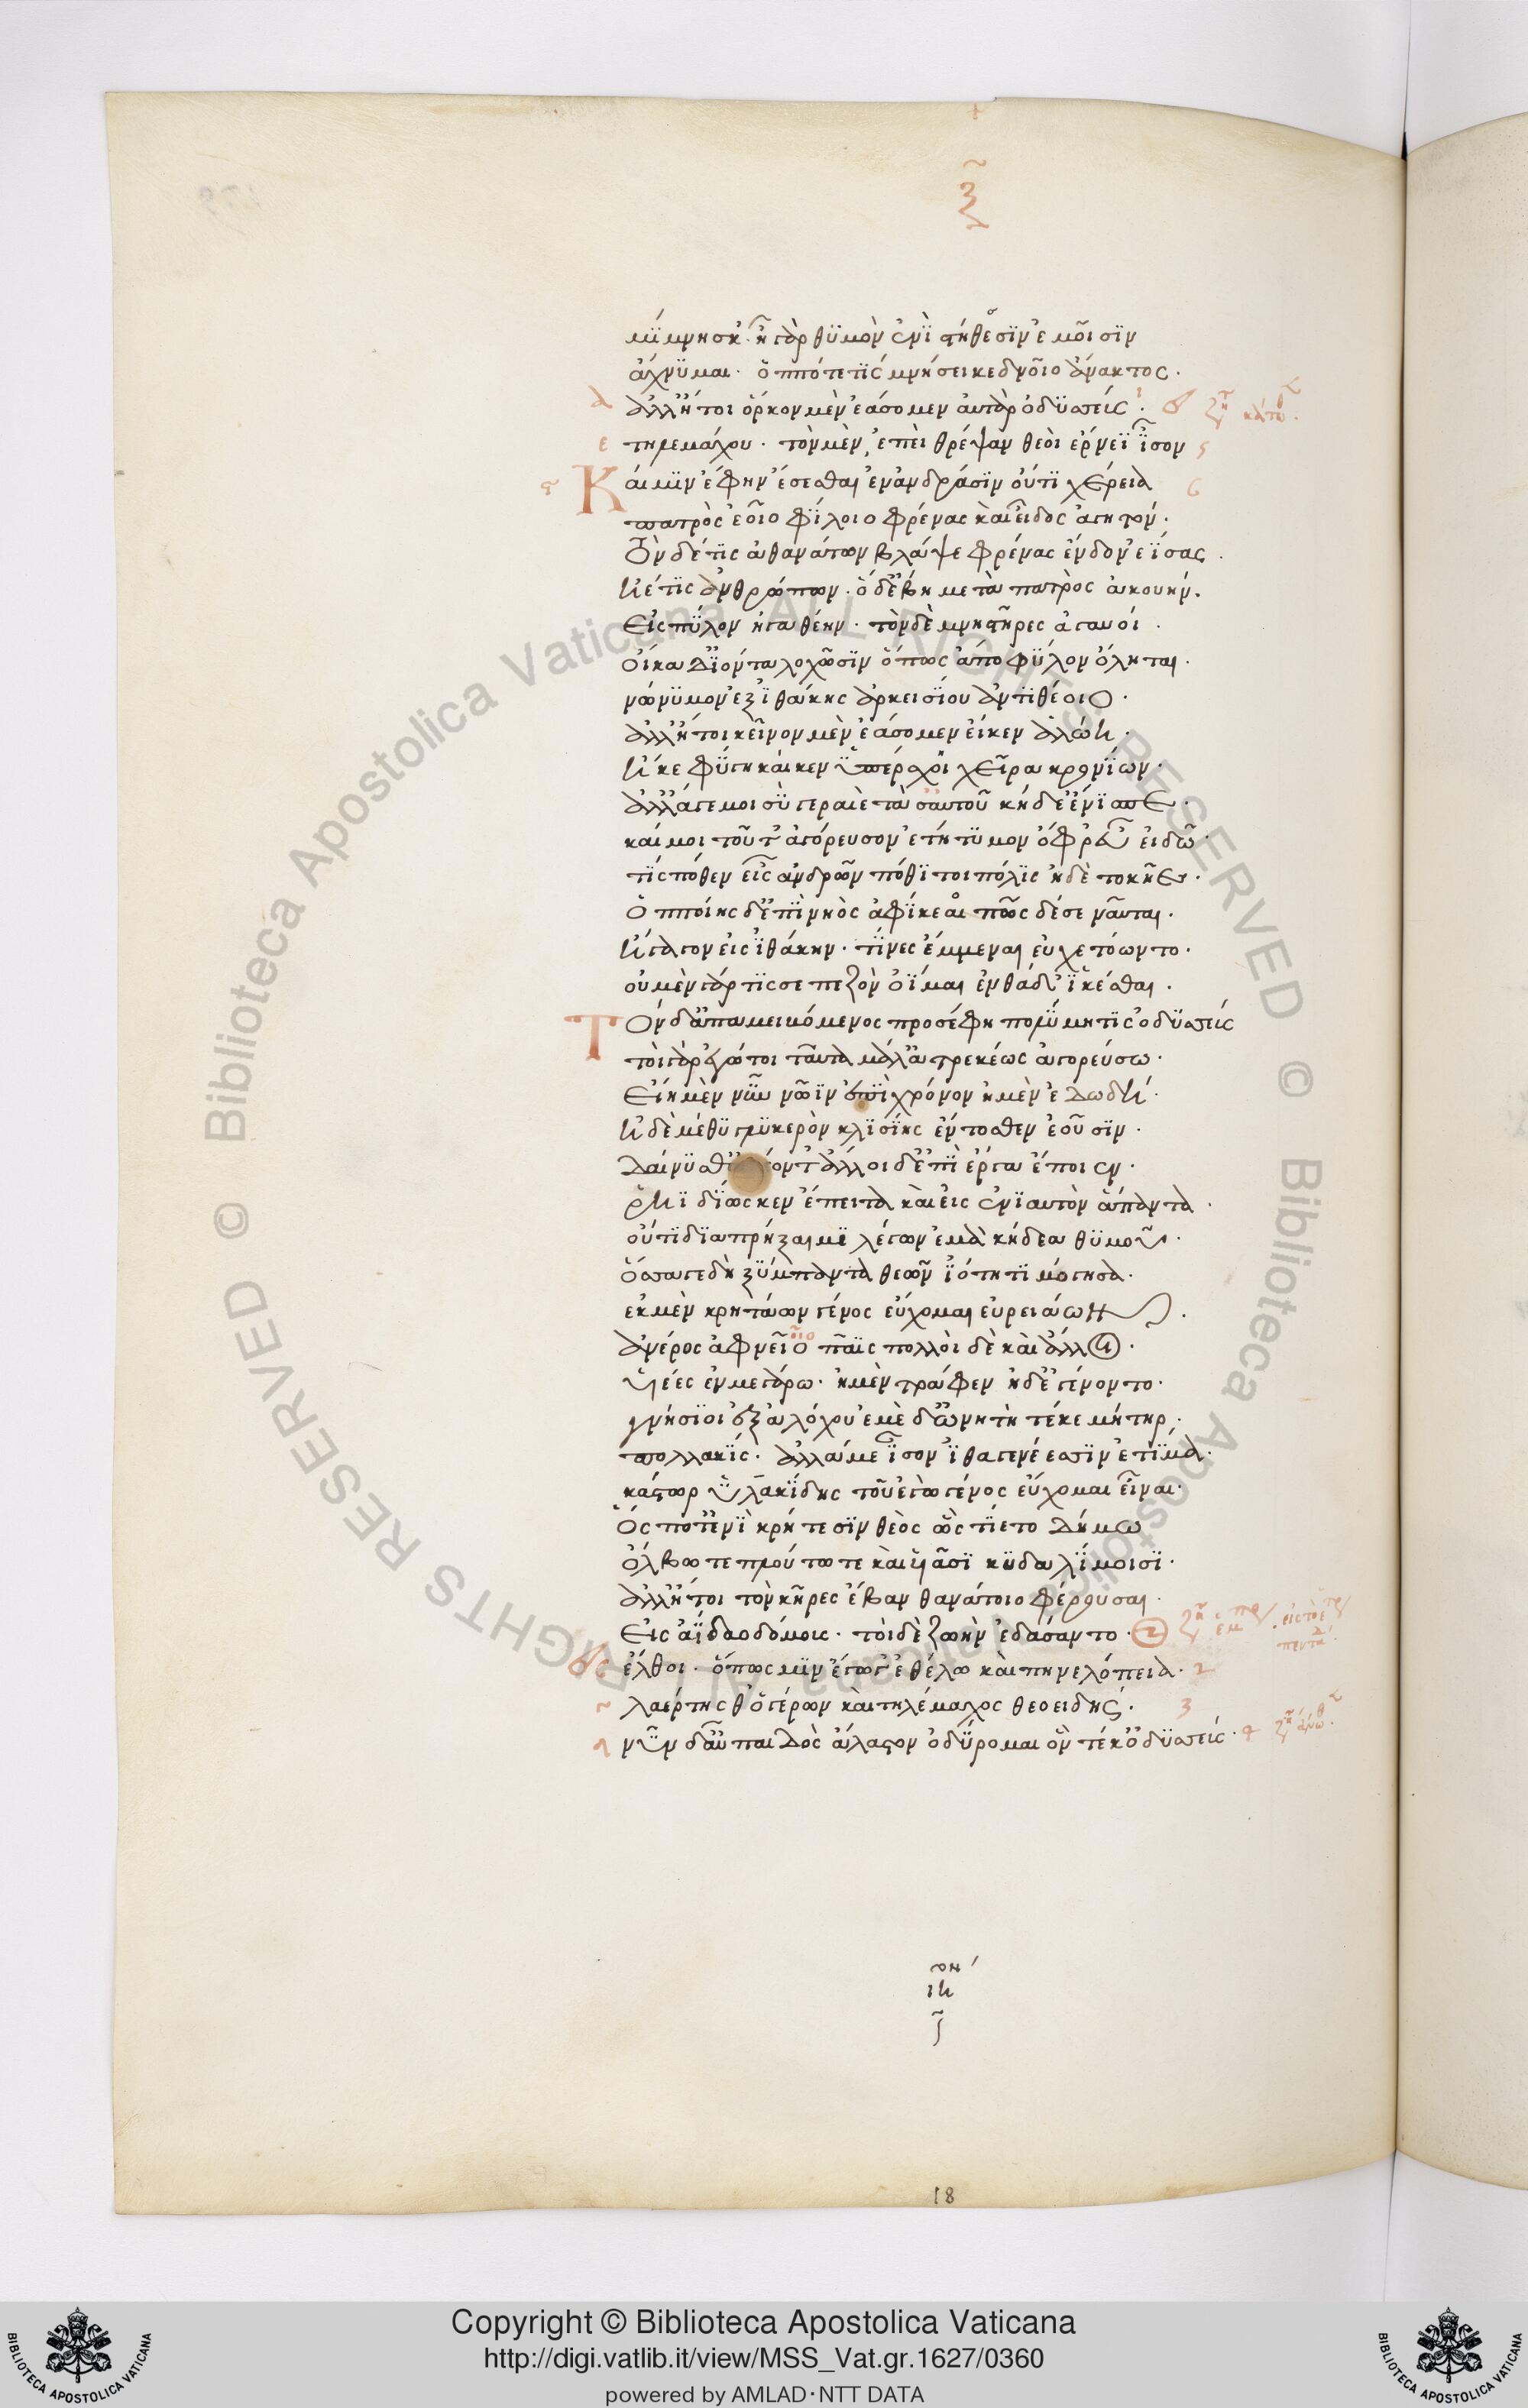 ξ
μίμνησκ'· ἦ γὰρ θυμὸν ἐνὶ στήθεσιν ἐμοῖσιν
ἄχνυμαι· ὁππότε τίς μνήσει κεδνοῖο ἄνακτος·
ἀλλ' ἤτοι ὅρκον μὲν ἐάσομεν αὐτὰρ ὀδυσσεύς·
τηλεμάχου· τὸν μὲν, ἐπεὶ θρέψαν θεοὶ ἔρνεϊ ἶσον
Καί μιν ἔφην ἔσεσθαι ἐν ἀνδράσιν οὔτι χέρεια
πατρὸς ἑοῖο φίλοιο φρένας καὶ εἶδος ἀγητόν·
Ὃν δέ τις ἀθανάτων βλάψε φρένας ἔνδον ἐΐσας·
ἠέ τις ἀνθρώπων· ὁ δ' ἔβη μετὰ πατρὸς ἀκουήν·
Εἰς πύλον ἠγαθέην· τὸν δὲ μνηστῆρες ἀγαυοί·
οἴκαδ' ἰόντα λοχῶσιν ὅπως ἀπὸ φῦλον ὄληται·
νώνυμον ἐξ ἰθάκης ἀρκεισίου ἀντιθέοιο·
ἀλλ' ἤτοι κεῖνον μὲν ἐάσομεν εἴ κεν ἁλώη·
ἤ κε φύγη καί κεν ὑπέρσχοι χεῖρα κρονίων·
ἀλλ' ἄγε μοι σὺ γεραιὲ τὰ σαυτοῦ κήδε' ἐνίσπες·
καί μοι τοῦτ' ἀγόρευσον ἐτήτυμον ὄφρ' εὖ εἰδῶ·
τίς πόθεν εἶς ἀνδρῶν πόθι τοι πόλις ἠδὲ τοκῆες·
Ὁπποίης δ' ἐπὶ νηὸς ἀφίκεο πῶς δέ σε ναῦται·
ἤγαγον εἰς ἰθάκην· τίνες ἔμμεναι εὐχετόωντο·
οὐ μὲν γάρ τί σε πεζὸν ὀΐομαι ἐνθάδ' ἱκέσθαι·
Τὸν δ' ἀπαμειβόμενος προσέφη πολύμητις ὀδυσσεύς
τοὶ γὰρ ἐγώ τοι ταῦτα μάλ' ἀτρεκέως ἀγορεύσω·
Εἴη μὲν νῦν νῶϊν ἐπὶ χρόνον ἠμὲν ἐδωδή·
ἠδὲ μέθυ γλυκερὸν κλισίης ἔντοσθεν ἐοῦσιν·
δαίνυσθ' ἀκέοντ' ἄλλοι δ' ἐπὶ ἔργα ἕποιεν·
ῥηϊδίως κεν ἔπειτα καὶ εἰς ἐνιαυτὸν ἅπαντα·
οὔτι διαπρήξαιμι λέγων ἐμὰ κήδεα θυμοῦ·
ὅσσα γε δὴ ξύμπαντα θεῶν ἰότητι μόγησα·
ἐκ μὲν κρητάων γένος εὔχομαι εὐρειάων·
ἀνέρος ἀφνειοῖο πάϊς πολλοὶ δὲ καὶ ἄλλοι·
υἱέες ἐν μεγάρω· ἠμὲν τράφεν ἠδ' ἐγένοντο·
γνήσιοι ἐξ ἀλόχου ἐμὲ δ' ὠνητὴ τέκε μήτηρ·
παλλακίς· ἀλλά με ἶσον ἰθαγενέεσσιν ἐτίμα·
κάστωρ ὑλακίδης τοῦ ἐγὼ γένος εὔχομαι εἶναι·
Ὅς ποτ' ἐνὶ κρήτεσιν θεὸς ὣς τίετο δήμω
ὄλβω τε πλούτω τε καὶ υἱάσι κυδαλίμοισι·
ἀλλ' ἤτοι τὸν κῆρες ἔβαν θανάτοιο φέρουσαι·
Εἰς ἀΐδαο δόμοις· τοὶ δὲ ζωὴν ἐδάσαντο·
ἔλθοι· ὅπως μιν ἔγωγ' ἐθέλω καὶ πηνελόπεια·
λαέρτης θ' ὁ γέρων καὶ τηλέμαχος θεοειδής·
νῦν δ' αὖ παιδὸς ἄλαστον ὀδύρομαι ὃν τέκ' ὀδυσσεύς·
18
Copyright © Biblioteca Apostolica Vaticana
http://digi.vatlib.it/view/MSS_Vat.gr.1627/0360
powered by AMLAD·NTT DATA